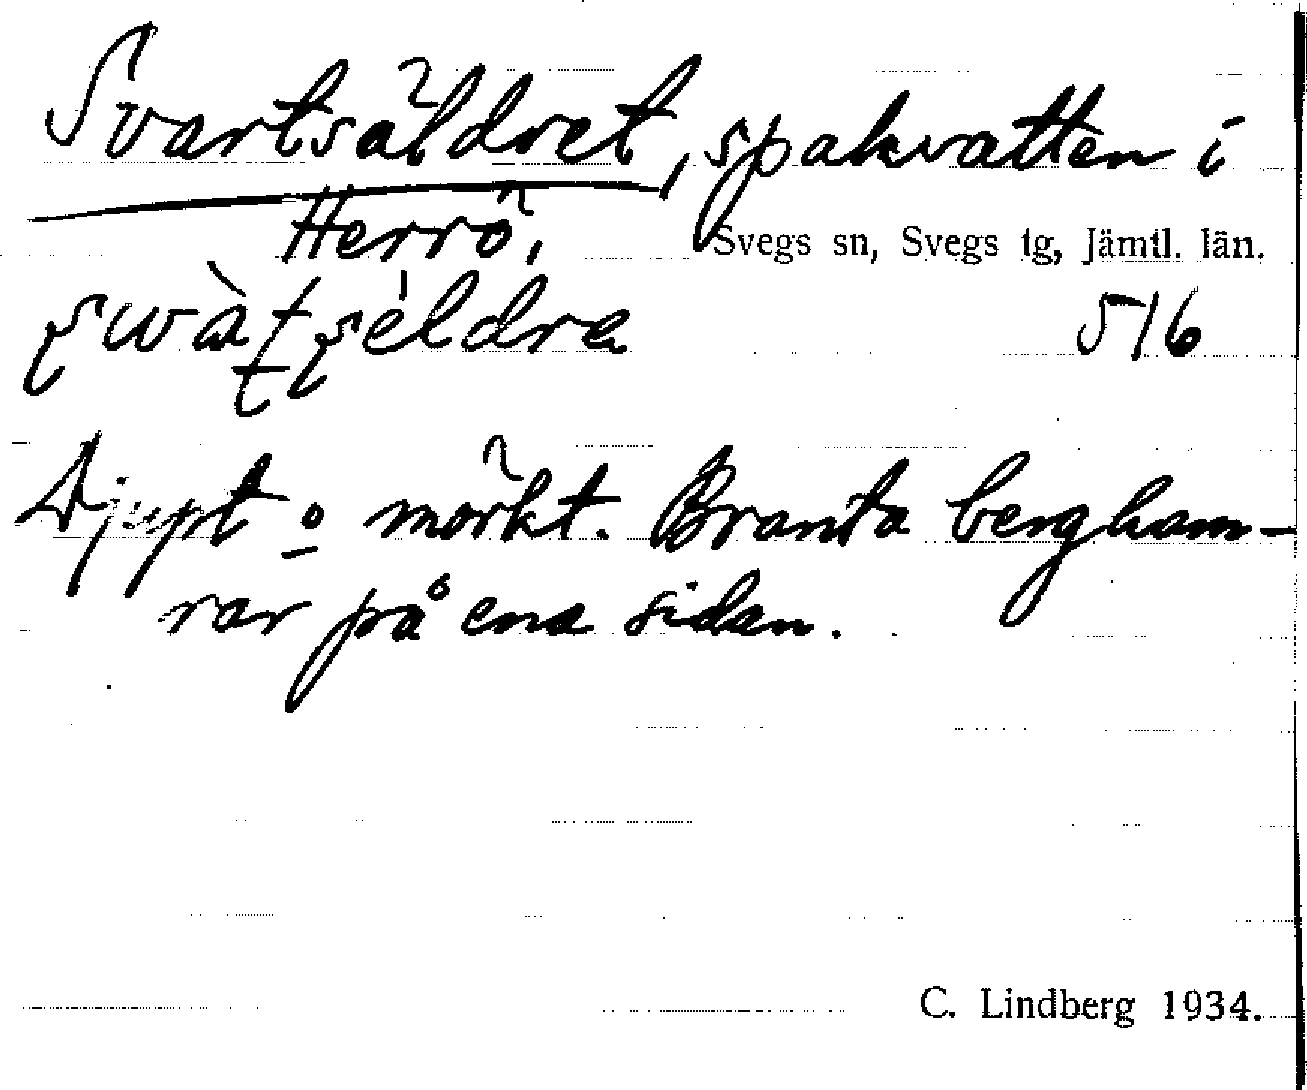 Svartsäldret, spakvatten i
Herrö.
Svegs sn, Svegs tg, Jämtl. län.
516
Djupt o mörkt. Branta bergham-
rar på ena sidan.
C. Lindberg 1934.